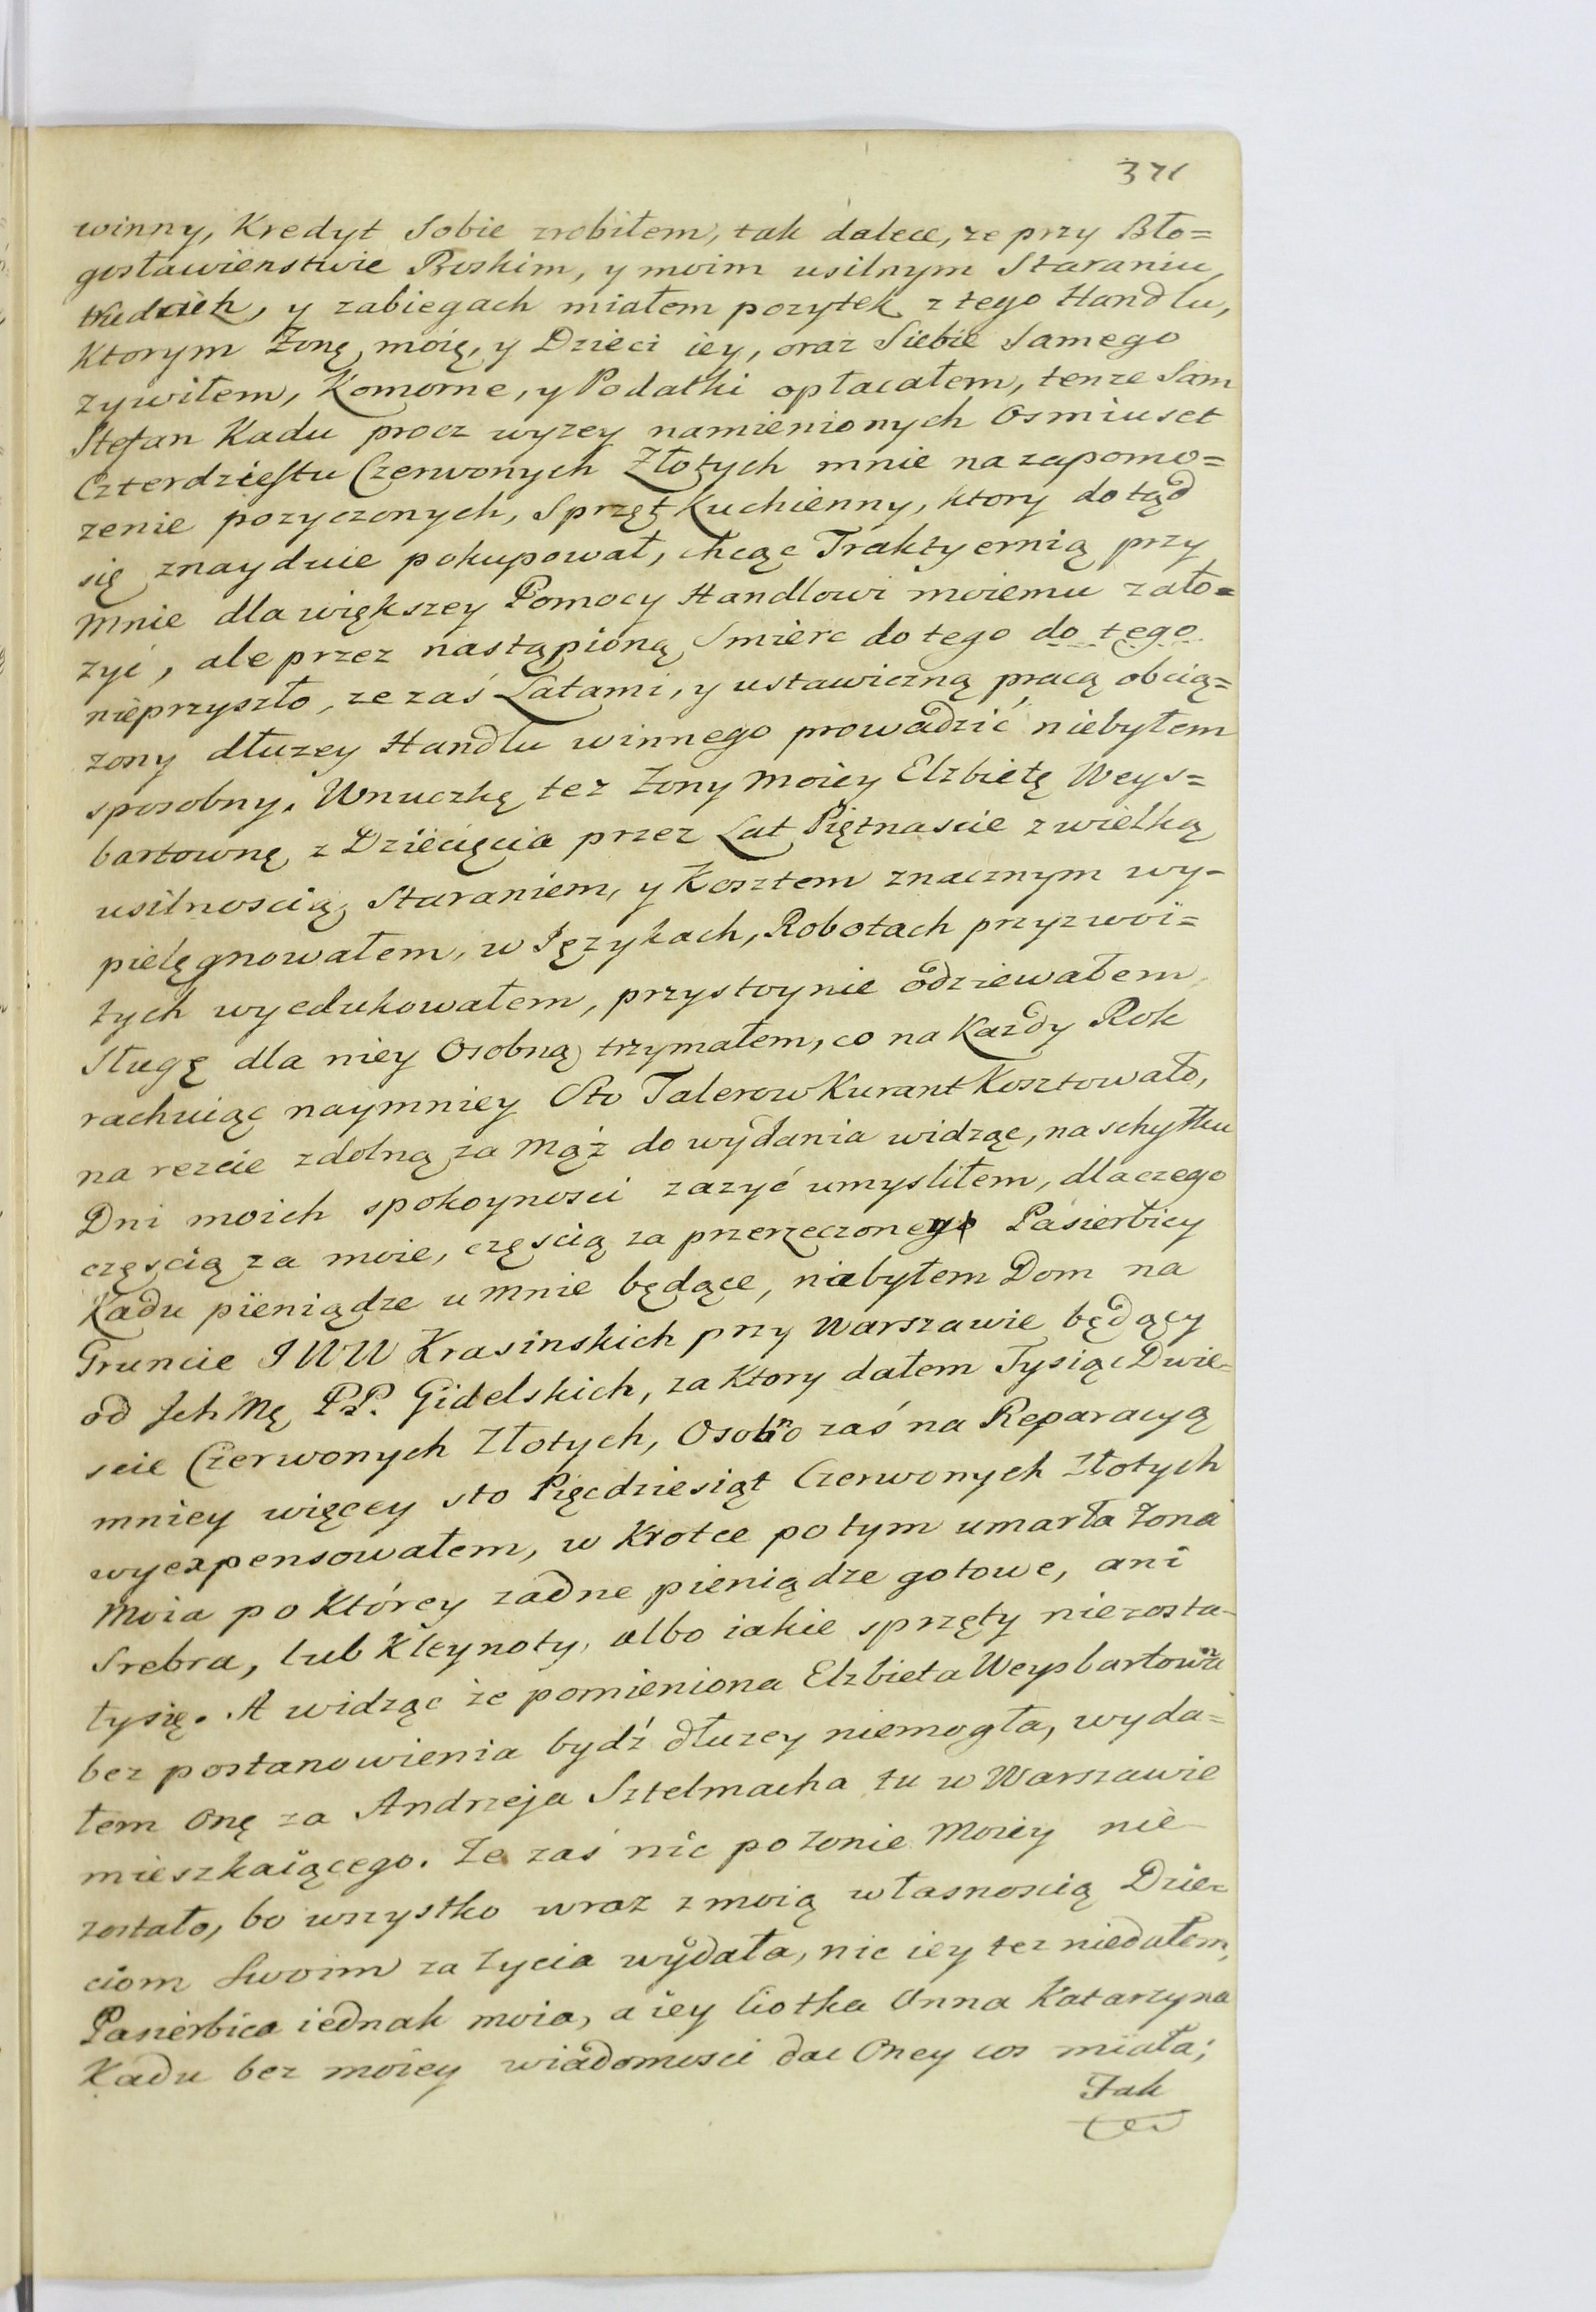 371
winny, Kredyt Sobie zrobiłem, tak dalece, ze przy Bło=
gosławienstwie Boskim, y moim usilnym Staraniu,
trudach, y zabiegach miałem pozytek z tego Handlu,
Ktorym Zonę moię, y Dzieci iey, oraz Siebie Samego
zywiłem, Komorne, y Podatki opłacałem, tenze Sam
Stefan Kadu procz wyzey namienionych Osmiuset
Czterdziestu Czerwonych Złotych mnie na zapomo=
zenie pozyczonych, Sprzęt Kuchienny, ktory dotąd
się znayduie pokupował, chcąc Traktyernią przy
mnie dla większey Pomocy Handlowi moiemu zało=
zyć, ale przez nastąpioną Smierc do tego do tego
nieprzyszło, ze zaś Latami, y ustawiczną pracą obcią=
zony dłuzey Handlu winnego prowadzić niebyłem
sposobny. Wnuczkę tez Zony moiey Elzbietę Weys=
bartownę z Dziecięcia przez Lat Piętnascie z wielką
usilnoscią, Staraniem, y Kosztem znacznym wy-
pielęgnowałem, w Językach, Robotach przyzwoi=
tych wyedukowałem, przystoynie odziewałem,
Sługę dla niey Osobną trzymałem, co na Kazdy Rok
rachuiąc naymniey Sto Talerow Kurant Kosztowało,
na rezcie zdolną za Mąż do wydania widząc, na schyłku
Dni moich spokoynosci zazyć umysliłem, dlaczego
częscią za moie, częscią za przerzeczoney Pasierbicy
Kadu pieniądze u mnie będące, nabyłem Dom na
Gruncie JWW Krasinskich przy Warszawie będący
od Jch Mę PP. Gidelskich, za Ktory dałem Tysiąc Dwie-
scie Czerwonych Złotych, Osobno zaś na Reparacyą
mniey więcey sto Pięcdziesiąt Czerwonych Złotych
wyexpensowałem, w Krotce potym umarła Zona
Moia po Którey zadne pieniądze gotowe, ani
Srebra, lub Kleynoty, albo iakie sprzęty niezosta-
łysię. A widząc że pomieniona Elzbieta Weysbartowna
bez postanowienia bydź dłuzey niemogła, wyda=
łem Onę za Andrzeja Sztelmacha tu w Warszawie
mieszkaiącego. Ze zaś nic po zonie Moiey nie-
zostało, bo wszystko wraz z moią własnoscią Dzie-
ciom Swoim za zycia wydała, nic iey tez niedałem,
Pasierbica iednak moia, a iey Ciotka Anna Katarzyna
Kadu bez moiey wiadomosci dac Oney cos miała;
Jak